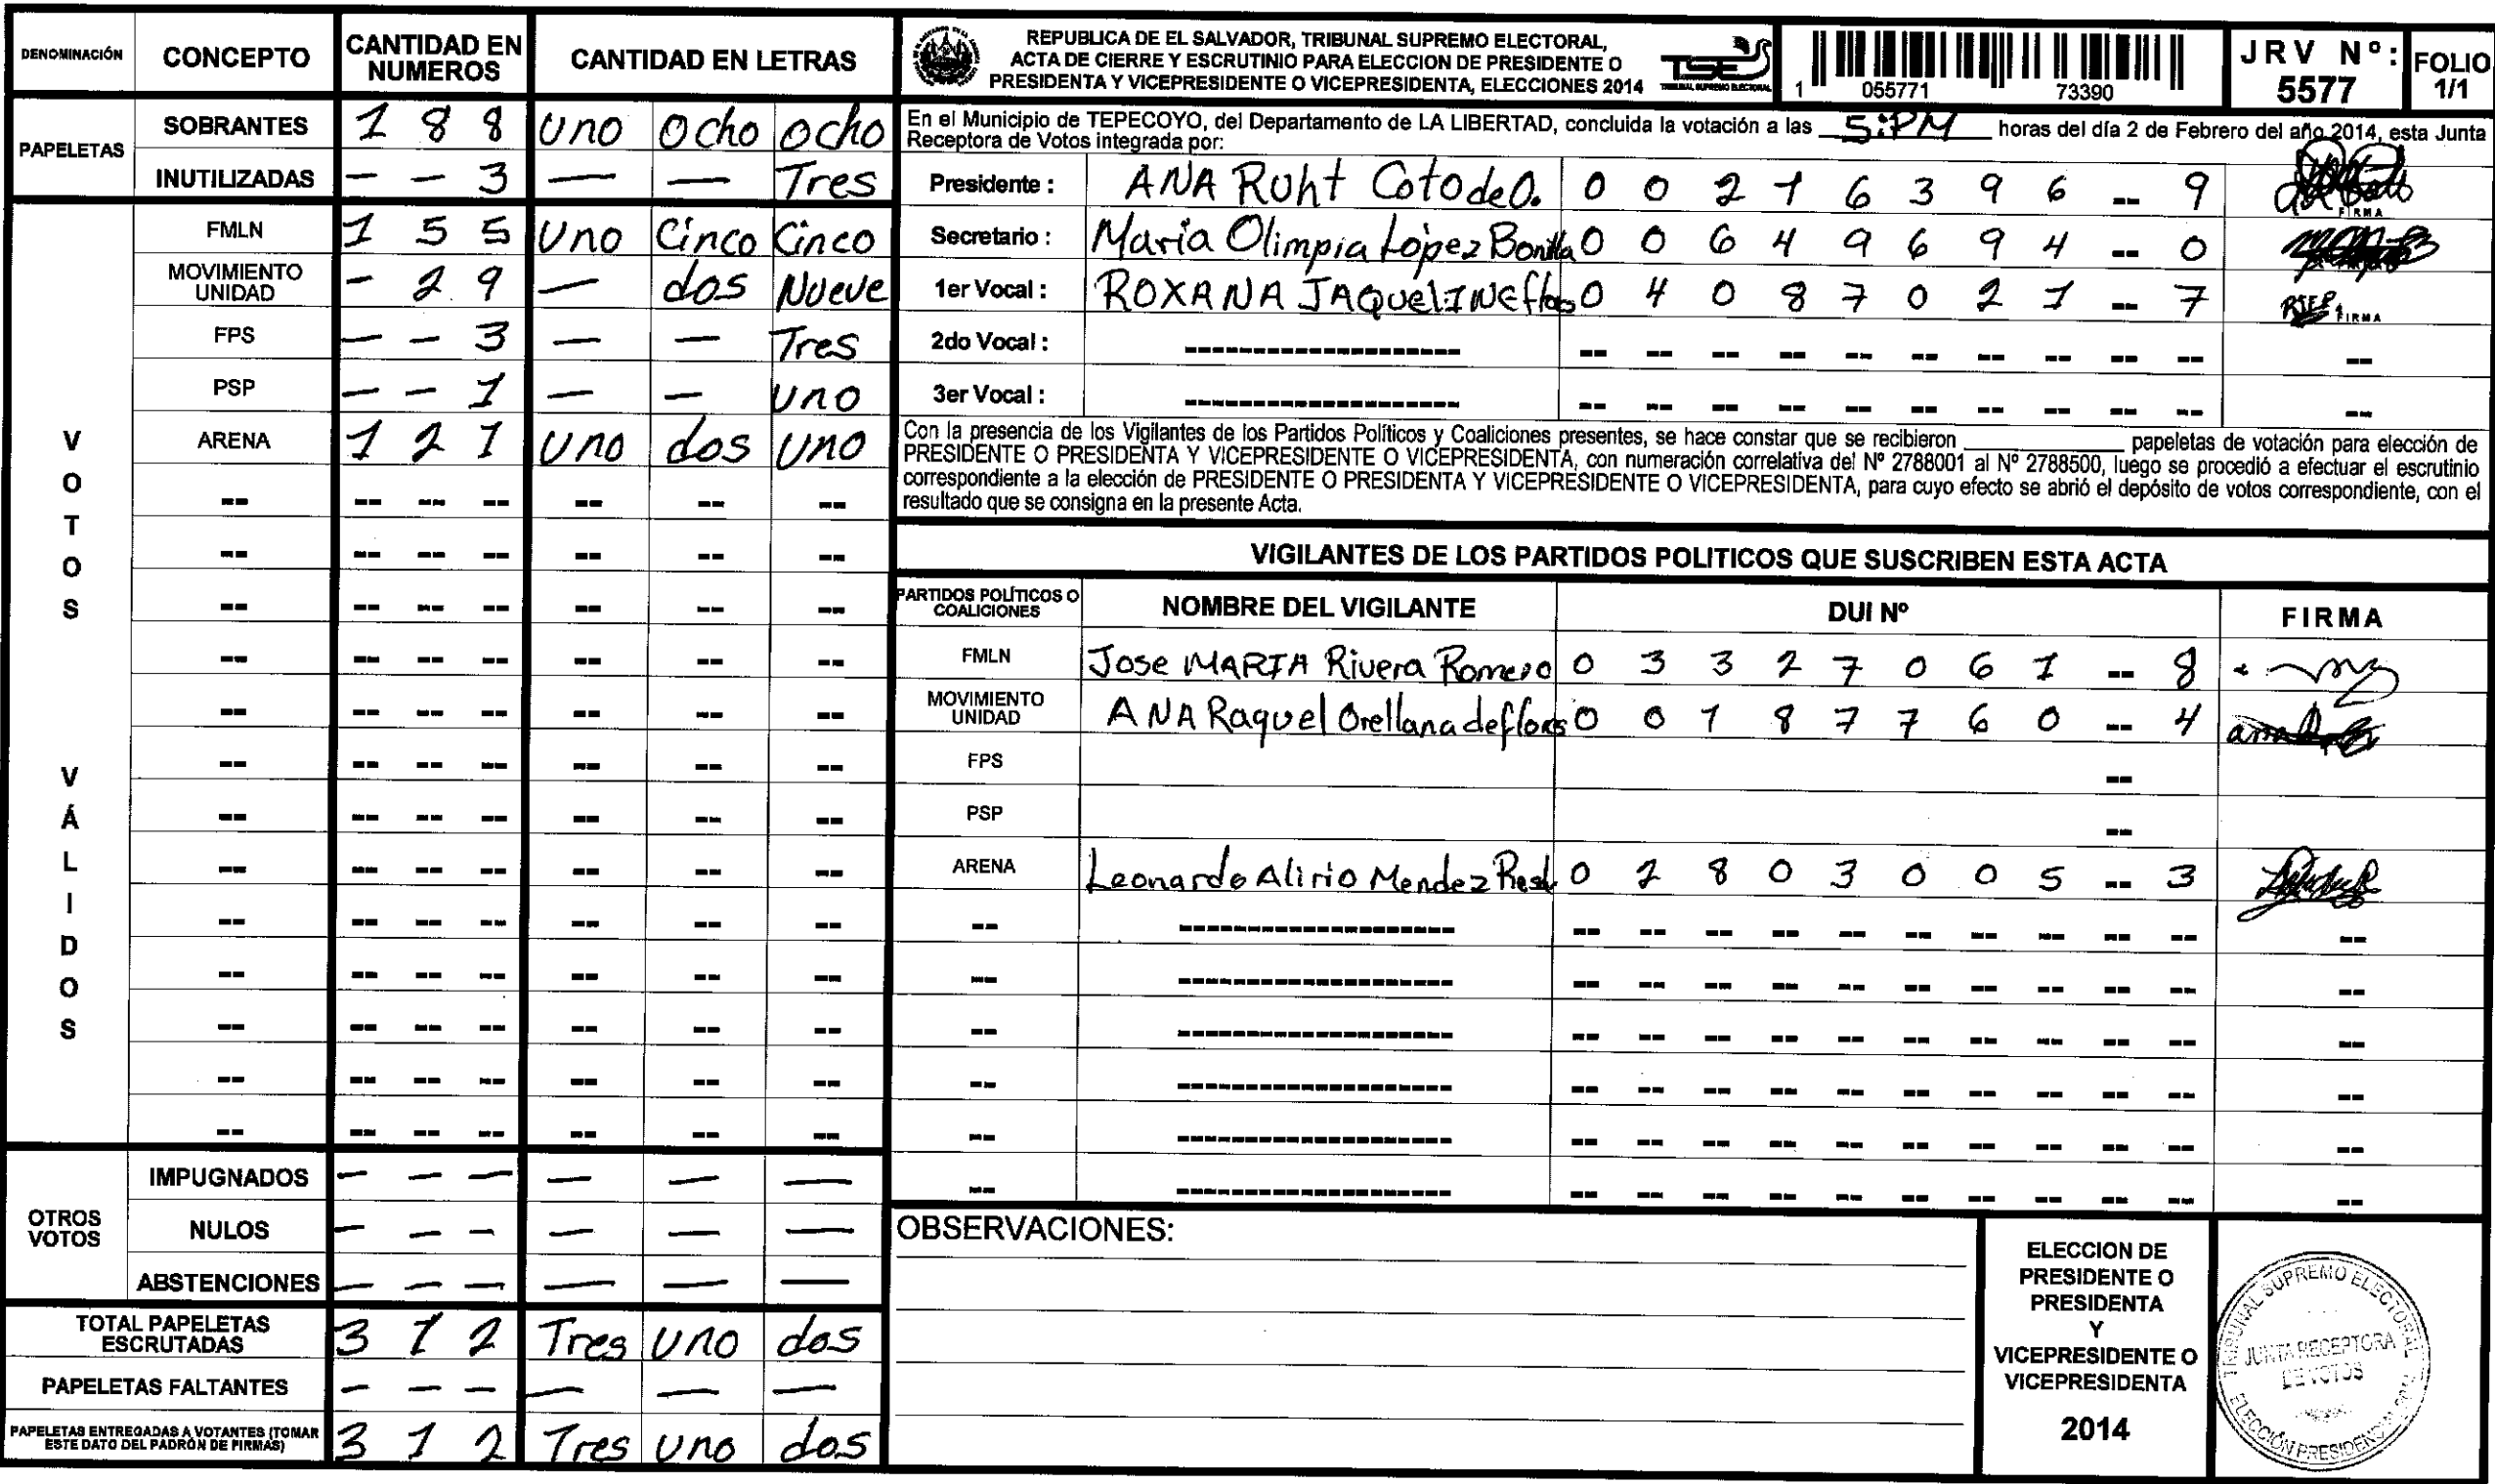 DENOMINACIÓN CONCEPTO CANTIDAD EN NUMEROS CANTIDAD EN LETRAS
PAPELETAS
SOBRANTES 1 8 8 uno ocho ocho
INUTILIZADAS - - 3 — — Tres
VOTOS VÁLIDOS
FMLN 1 5 5 uno Cinco Cinco
MOVIMIENTO UNIDAD - 2 9 — dos Nueve
FPS - - 3 — — Tres
PSP - - 1 — — uno
ARENA 1 2 1 uno dos uno
OTROS VOTOS
IMPUGNADOS - - - — — —
NULOS - - - — — —
ABSTENCIONES - - - — — —
TOTAL PAPELETAS ESCRUTADAS 3 1 2 Tres uno dos
PAPELETAS FALTANTES - - - — — —
PAPELETAS ENTREGADAS A VOTANTES (TOMAR ESTE DATO DEL PADRÓN DE FIRMAS) 3 1 2 Tres uno dos
REPUBLICA DE EL SALVADOR, TRIBUNAL SUPREMO ELECTORAL,
ACTA DE CIERRE Y ESCRUTINIO PARA ELECCION DE PRESIDENTE O
PRESIDENTA Y VICEPRESIDENTE O VICEPRESIDENTA, ELECCIONES 2014
TSE
TRIBUNAL SUPREMO ELECTORAL
1 055771 73390
JRV Nº: 5577
FOLIO 1/1
En el Municipio de TEPECOYO, del Departamento de LA LIBERTAD, concluida la votación a las 5:PM horas del día 2 de Febrero del año 2014, esta Junta
Receptora de Votos integrada por:
Presidente : ANA Ruht Coto de O. 0 0 2 1 6 3 9 6 -- 9 FIRMA
Secretario : Maria Olimpia López Bonilla 0 0 6 4 9 6 9 4 -- 0
1er Vocal : ROXANA JAQuelINe flos 0 4 0 8 7 0 2 1 -- 7 FIRMA
2do Vocal :
3er Vocal :
Con la presencia de los Vigilantes de los Partidos Políticos y Coaliciones presentes, se hace constar que se recibieron ________ papeletas de votación para elección de
PRESIDENTE O PRESIDENTA Y VICEPRESIDENTE O VICEPRESIDENTA, con numeración correlativa del Nº 2788001 al Nº 2788500, luego se procedió a efectuar el escrutinio
correspondiente a la elección de PRESIDENTE O PRESIDENTA Y VICEPRESIDENTE O VICEPRESIDENTA, para cuyo efecto se abrió el depósito de votos correspondiente, con el
resultado que se consigna en la presente Acta.
VIGILANTES DE LOS PARTIDOS POLITICOS QUE SUSCRIBEN ESTA ACTA
PARTIDOS POLÍTICOS O COALICIONES NOMBRE DEL VIGILANTE DUI Nº FIRMA
FMLN Jose MARIA Rivera Romero 0 3 3 2 7 0 6 1 -- 8
MOVIMIENTO UNIDAD ANA Raquel Orellana de flores 0 0 1 8 7 7 6 0 -- 4
FPS --
PSP --
ARENA Leonardo Alirio Mendez 0 2 8 0 3 0 0 5 -- 3
OBSERVACIONES:
ELECCION DE
PRESIDENTE O
PRESIDENTA
Y
VICEPRESIDENTE O
VICEPRESIDENTA
2014
TRIBUNAL SUPREMO ELECTORAL
JUNTA RECEPTORA
DE VOTOS